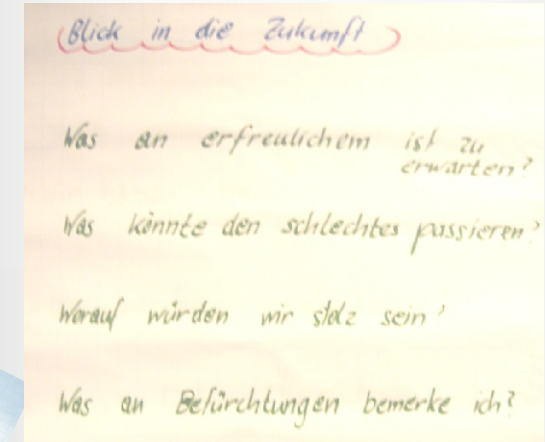 Blick in die Zukunft
Was an erfreulichem ist zu
erwarten?
Was könnte den schlechtes passieren?
Worauf würden wir stolz sein?
Was an Befürchtungen bemerke ich?